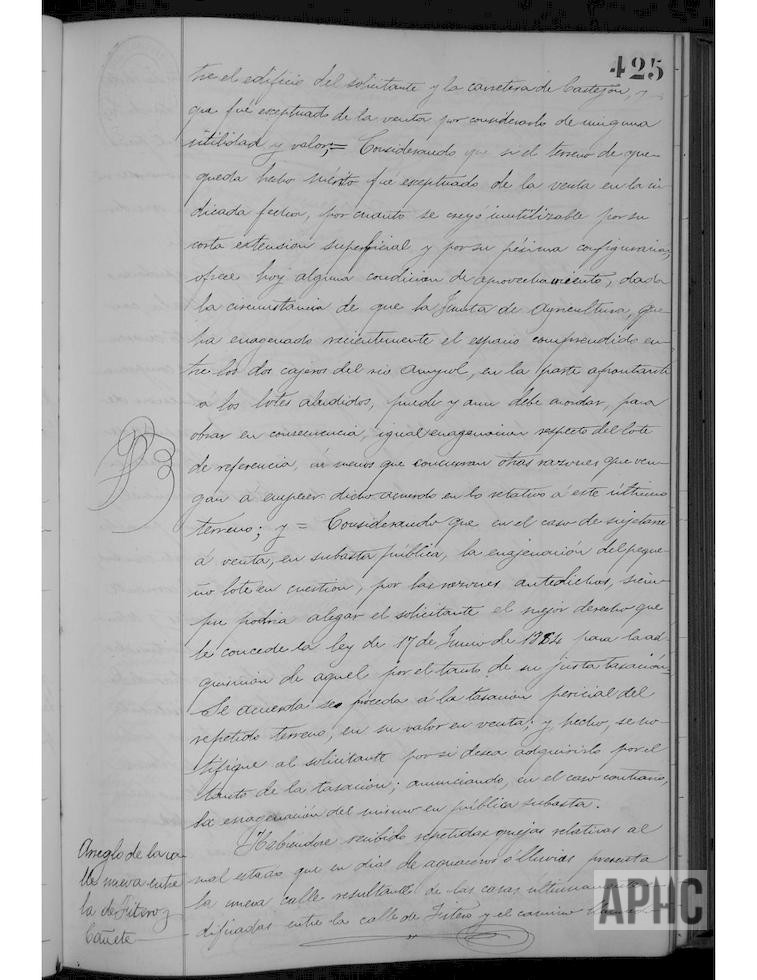 425
tre el edificio del solicitante y la carretera de Castejon, y
que fué exceptuado de la venta por considerarlo de ninguna
utilidad y valor;= Considerando que si el terreno de que
queda hecho mérito fué exceptuado de la venta en la in-
dicada fecha, por cuanto se creyó inutilizable por su
corta extension superficial y por su pésima configuracion,
ofrece hoy alguna condicion de aprovechamiento, dada
la circunstancia de que la Junta de Agricultura, que
ha enagenado recientemente el espacio comprendido en-
tre los dos cajeros del rio, en la parte afrontante
a los lotes aludidos, puede y aun debe acordar, para
obrar en consecuencia, igual enagenacion respecto del lote
de referencia, á menos que concurran otras razones que ven-
gan á empecer dicho acuerdo en lo relativo á este último
terreno; y = Considerando que en el caso de sujetarse
á venta, en subasta pública, la enajenación del peque-
ño lote en cuestion, por las razones antedichas, siem-
pre podria alegar el solicitante el mejor derecho que
le concede la ley de 17 de Junio de 1864 para la ad-
quisicion de aquel por el tanto de su justa tasación=
Se acuerda se proceda á la tasacion pericial del
repetido terreno, en su valor en venta; y, hecho, se no-
tifique al solicitante por si desea adquirirlo por el
tanto de la tasación; anunciando, en el caso contrario,
la enagenación del mismo en pública subasta.
Arreglo de la ca-
lle nueva entre
la de Fitero y
Cañete
Habiéndose recibido repetidas quejas relativas al
mal estado que en dias de aguaceros ó lluvias presenta
la nueva calle resultante de las casas ultimamente e-
dificadas entre la calle de Fitero y el camino
APHC